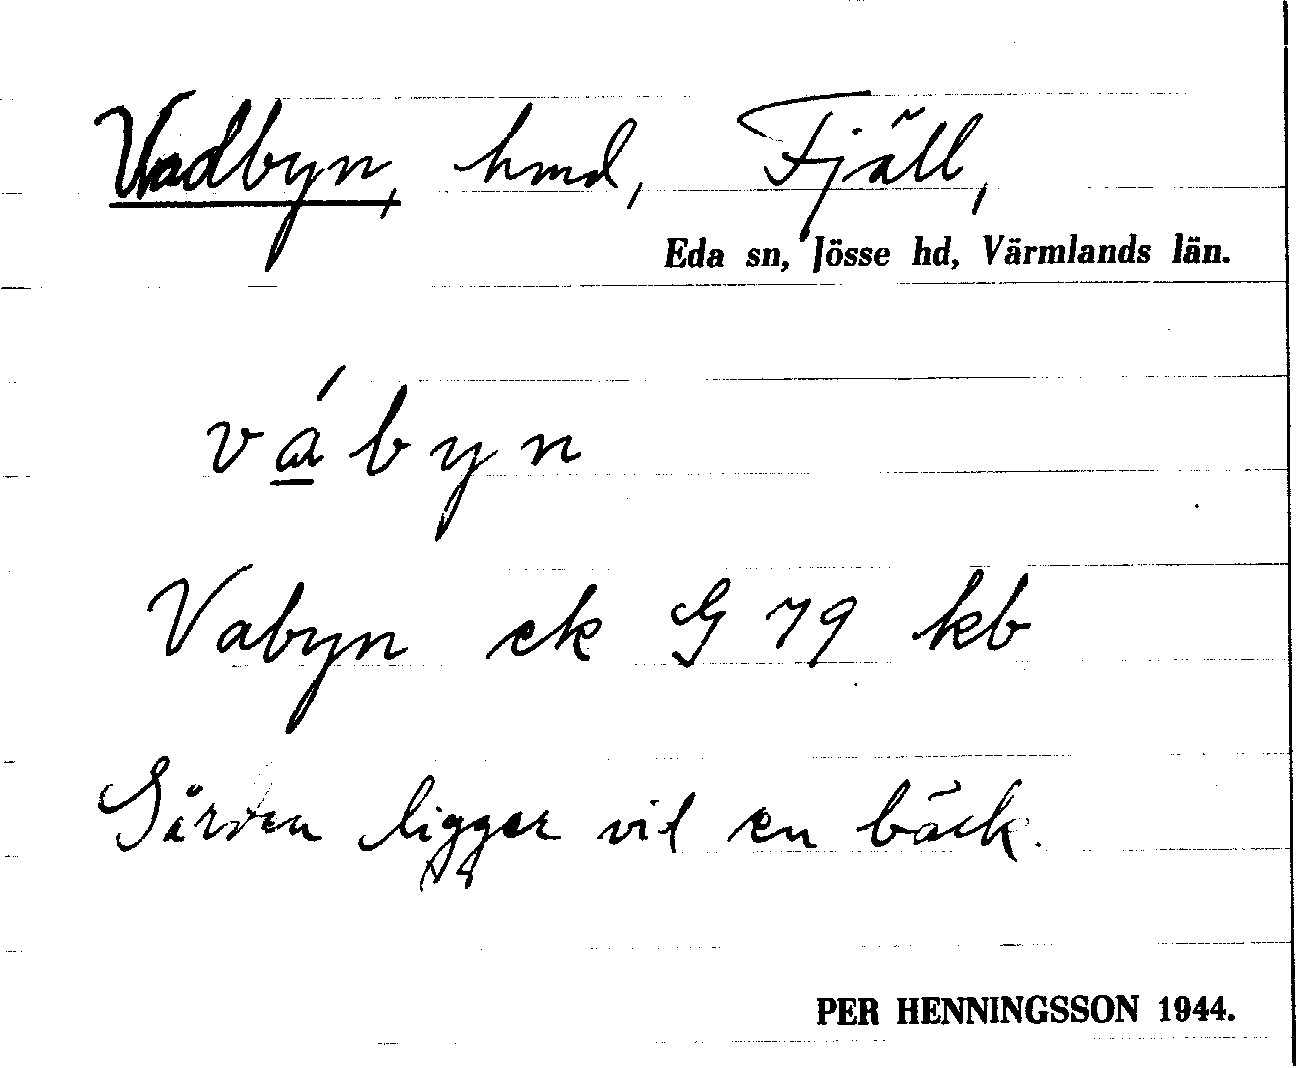 Vadbyn, hmd, Fjäll,
Eda sn, Jösse hd, Värmlands län.
vábyn
Vabyn ek G 79 kb
Gården ligger vid en bäck.
PER HENNINGSSON 1944.